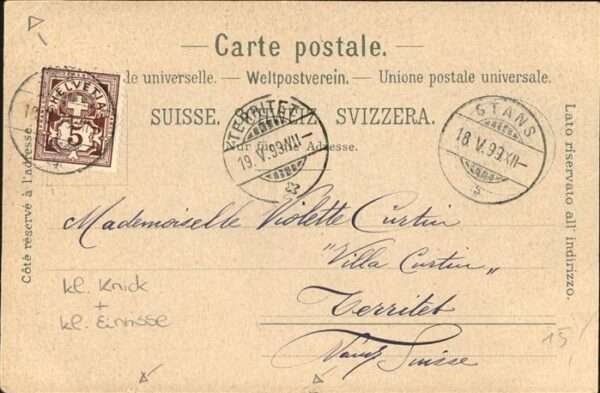 Carte postale.
de universelle. — Weltpostverein. — Unione postale universale.
SUISSE. SVIZZERA.
Nur für die Adresse.
Côté réservé à l'adresse.
Lato riservato all' indirizzo.
HELVETIA
5
18
TERRITET
19. V. 99. VII
STANS
18. V. 99. XII
Mademoiselle Violette Curtin
"Villa Curtin"
Territet
Suisse
kl. Knick
+
kl. Einrisse
15